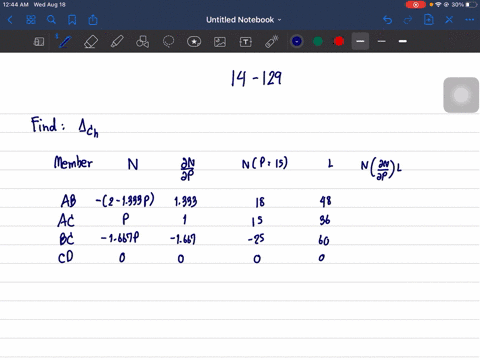 12:44 AM Wed Aug 18
30%
Untitled Notebook
14-129
Find: ΔCh
Member N ∂N/∂P N(P=15) L N(∂N/∂P)L
AB -(2-1.333P) 1.333 18 48
AC P 1 15 36
BC -1.667P -1.667 -25 60
CD 0 0 0 0